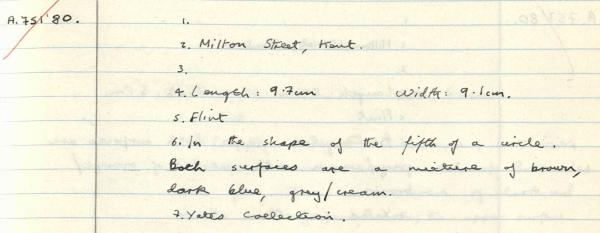 A.751'80. 1.
2. Milton Street, Kent.
3.
4. Length: 9.7cm Width: 9.1cm.
5. Flint
6. In the shape of the fifth of a circle.
Both surfaces are a mixture of brown,
dark blue, grey/cream.
7. Yates Collection.